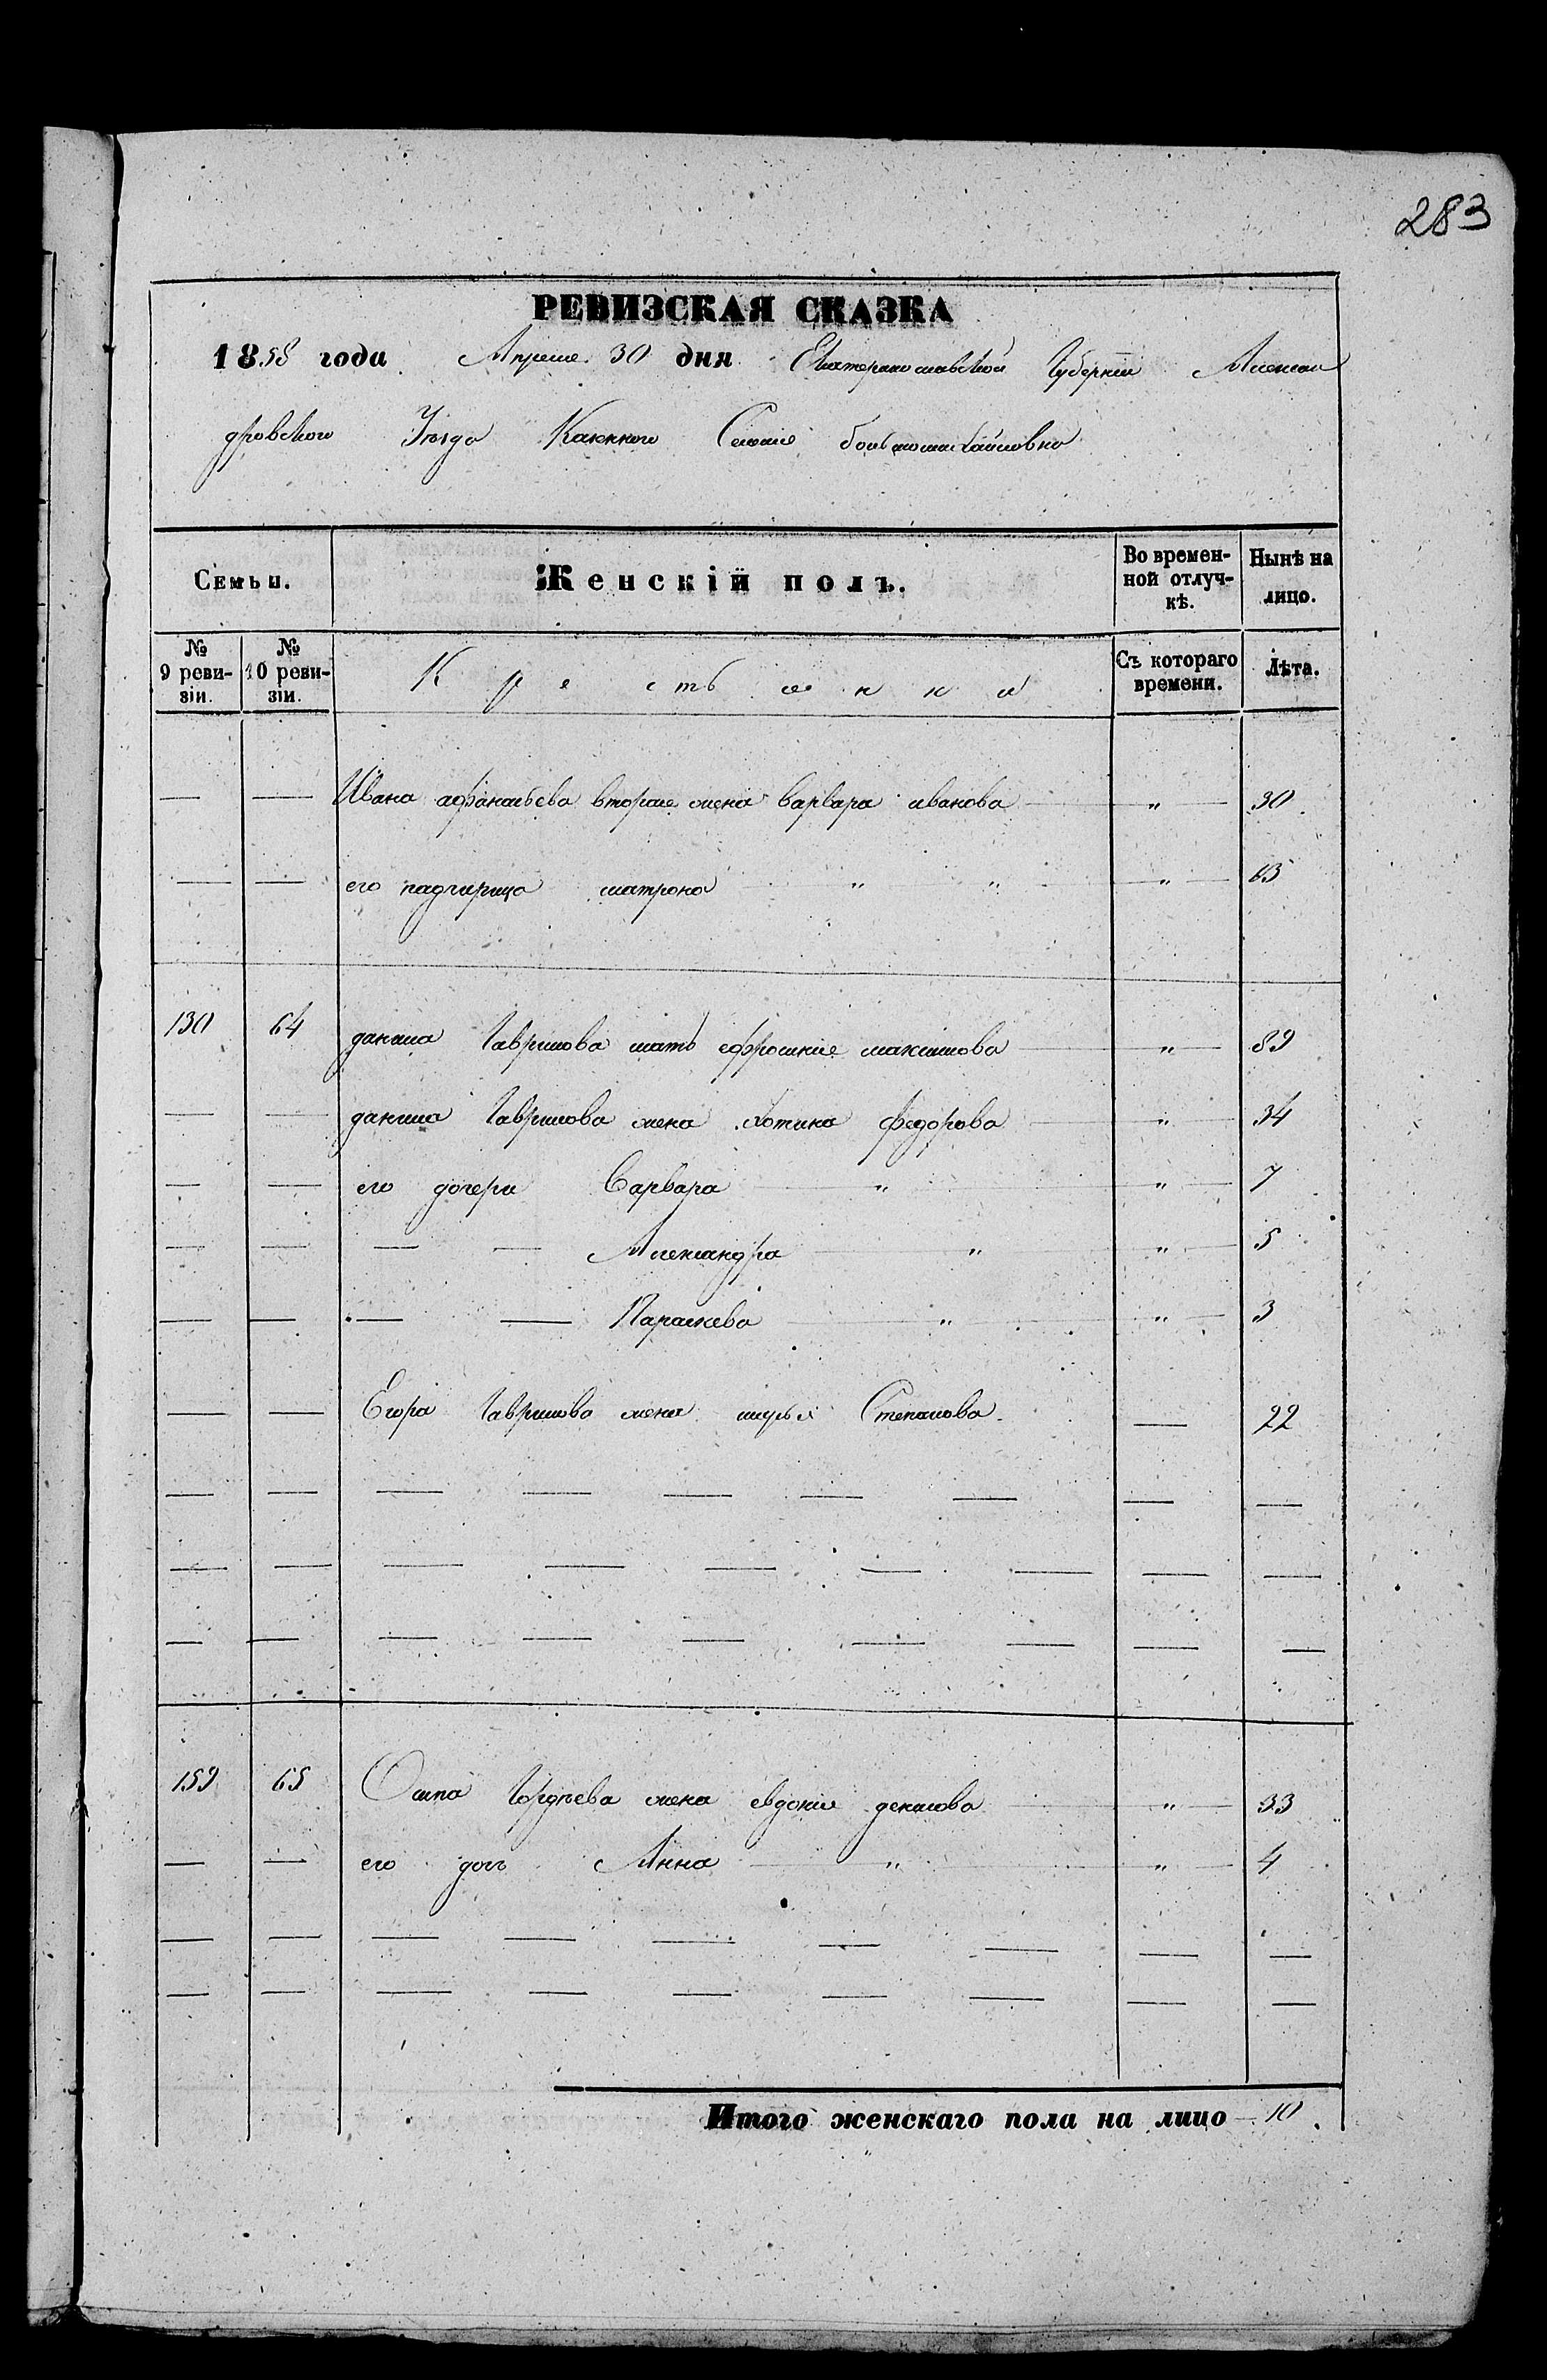 283
РЕВИЗСКАЯ СКАЗКА
1858 года Апреля 30 дня Екатеринославской Губернiи Алексан
дровского Уезда Казенного Селенiя большомихайловка
Семьи. Женскiй полъ. Во времен- Нынѣ на
ной отлуч- лицо.
кѣ.
№ № Крестьянки Съ котораго Лѣта.
9 реви- 10 реви- времени.
зiи. зiи.
— — Ивана афанасьева вторая жена варвара иванова — " — 30
— — его падчерица матрона — " " — " — 13
130 64 данила Гаврилова мать ефросинiя максимова — " — 89
— — данила Гаврилова жена хотина федорова — " — 34
— — его дочери Варвара — " — " — 7
— — — — Александра — " — " — 5
— — — — Параскева — " — " — 3
— — Егора Гаврилова жена Степанова — 22
— — — — — — — — —
— — — — — — — — —
— — — — — — — — —
159 65 Осипа Гордѣева жена евдокiя денисова — " — 33
— — его дочь Анна — " — " — 4
— — — — — — — — —
— — — — — — — — —
Итого женскаго пола на лицо — 10